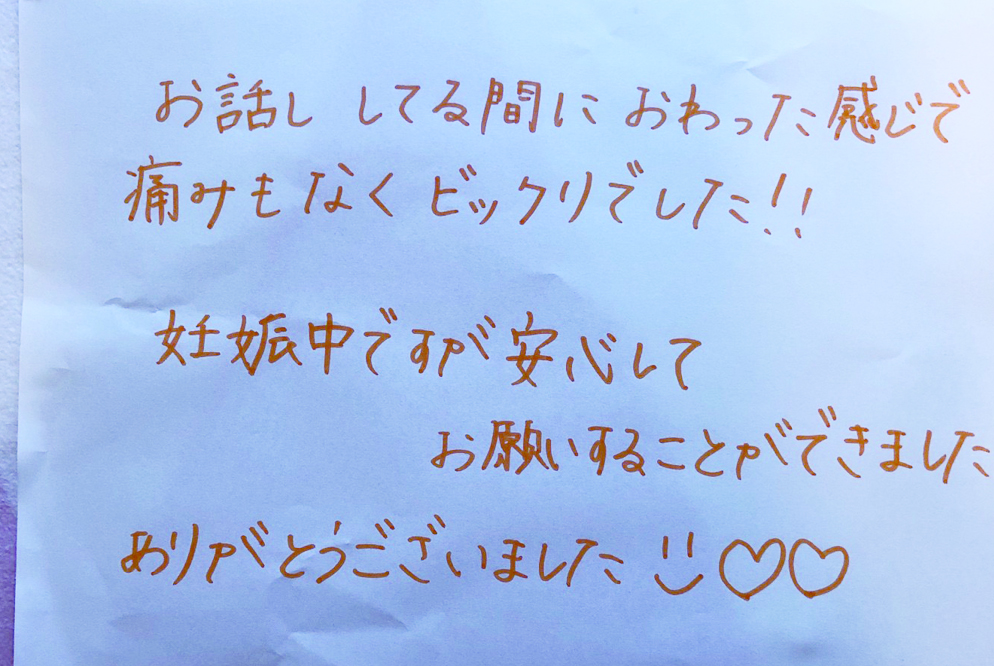 お話し してる間に おわった感じで
痛みもなく ビックリでした!!
妊娠中ですが 安心して
お願いすることができました
ありがとうございました